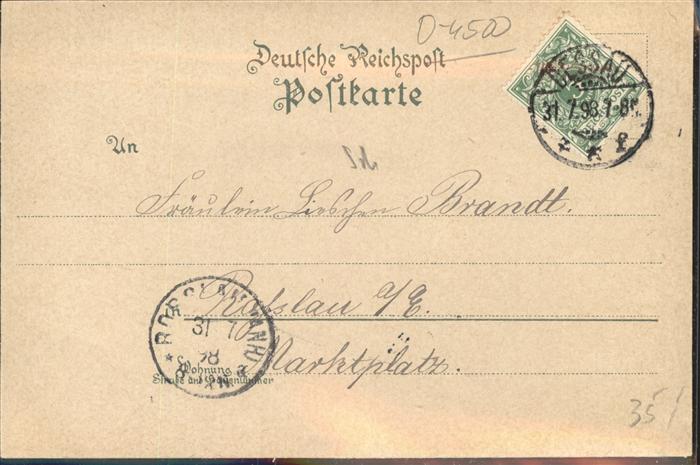 D-4500
Deutsche Reichspost
Postkarte
DESSAU
31.7.98.7-8N.
* 2 *
An
Fräulein Lieschen Brandt.
Roßlau a/E.
Marktplatz.
ROSSLAU (ANH)
31 7
98
Wohnung
Straße und Hausnummer
35/